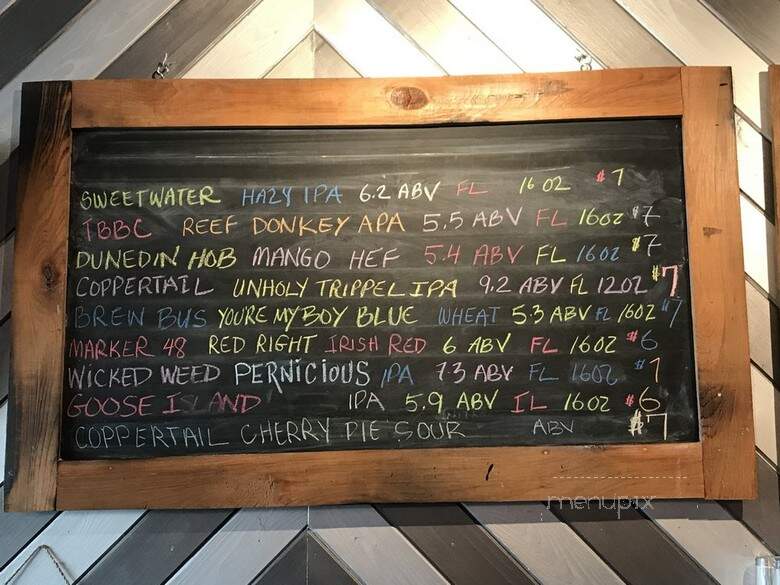 SWEETWATER HAZY IPA 6.2 ABV FL 16 OZ $7
TBBC REEF DONKEY APA 5.5 ABV FL 16OZ $7
DUNEDIN HOB MANGO HEF 5.4 ABV FL 16OZ $7
COPPERTAIL UNHOLY TRIPPEL IPA 9.2 ABV FL 12OZ $7
BREW BUS YOU'RE MY BOY BLUE WHEAT 5.3 ABV FL 16OZ $7
MARKER 48 RED RIGHT IRISH RED 6 ABV FL 16OZ $6
WICKED WEED PERNICIOUS IPA 7.3 ABV FL 16OZ $7
GOOSE ISLAND IPA 5.9 ABV IL 16OZ $6
COPPERTAIL CHERRY PIE SOUR ABV $7
menupix